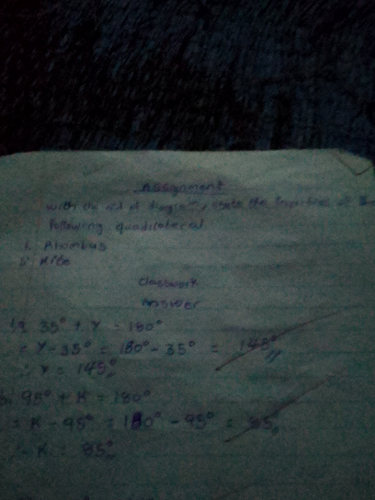 Assignment
With the aid of diagram, state the properties of the
following quadilateral
i. Rhombus
ii. Kite
Classwork
Answer
1a. 35° + Y = 180°
= Y - 35° = 180° - 35° = 145°
∴ Y = 145°
b. 95° + K = 180°
= K - 95° = 180° - 95° = 85°
∴ K = 85°